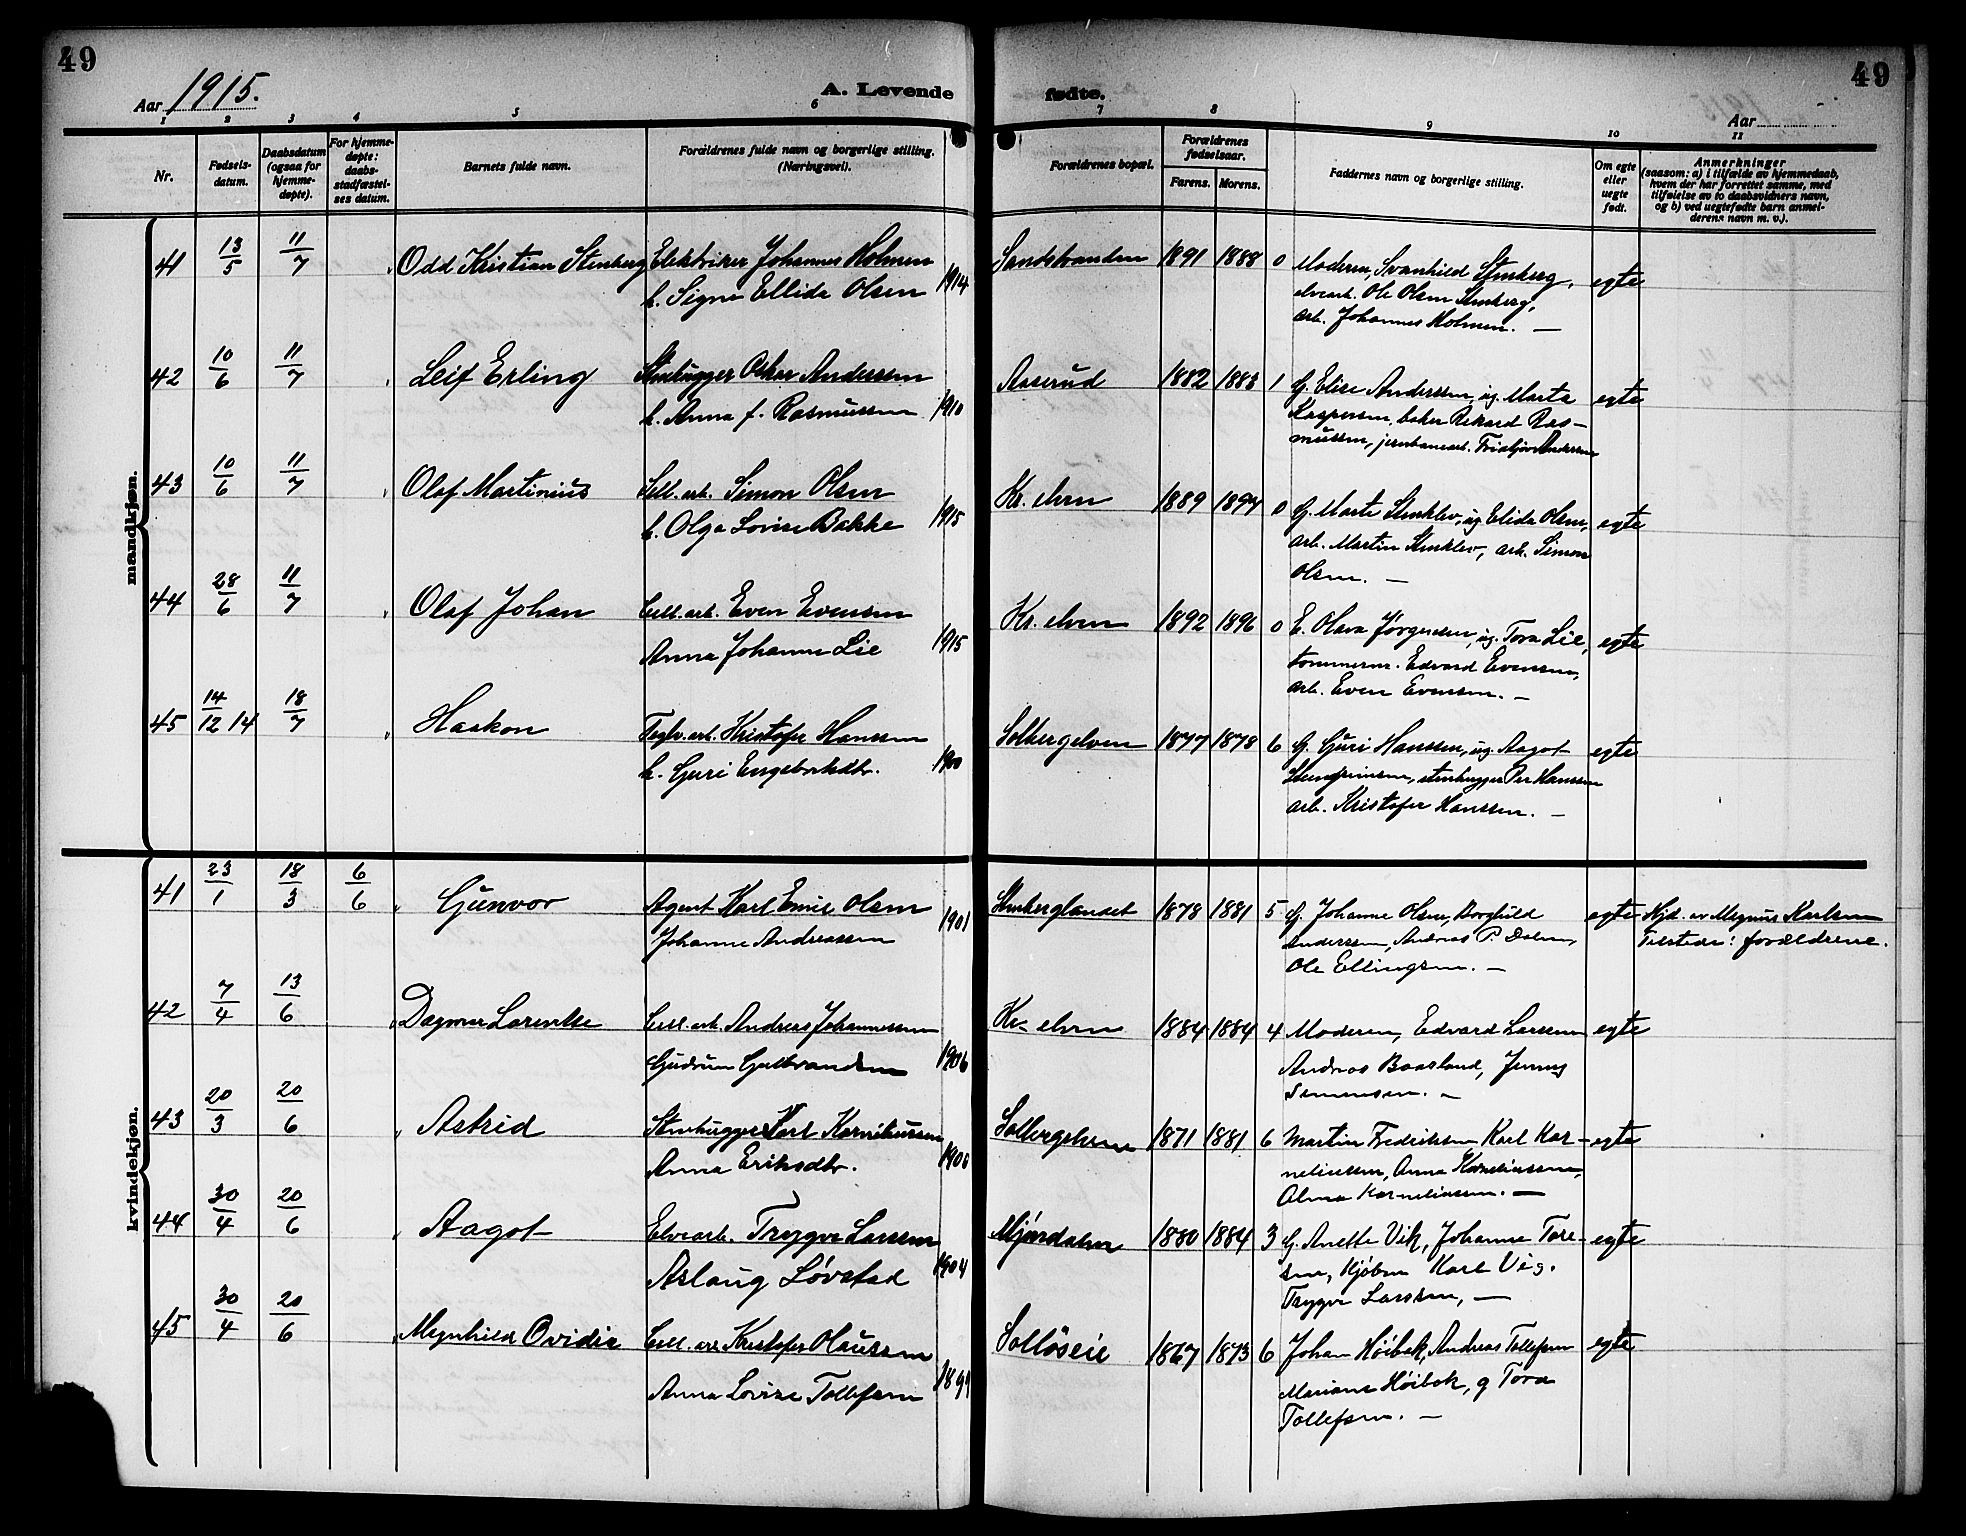 49
Aar 1915.
A. Levende
1 2 3 4 5 6
Nr.
Fødsels-
datum.
Daabsdatum
(ogsaa for
hjemme-
døpte).
For hjemme-
døpte:
daabs-
stadfæstel-
ses datum.
Barnets fulde navn.
Forældrenes fulde navn og borgerlige stilling.
(Næringsvei).
mandkjøn.
41 13/5 11/7 Odd Kristian Stenberg Elektriker Johannes Holmen
h. Signe Ellida Olsen 1914
42 10/6 11/7 Leif Erling Stenhugger Oskar Anderssen
h. Anna f. Rasmussen 1910
43 10/6 11/7 Olaf Martinius Cell. arb. Simon Olsen
h. Olga Lovise Bakke 1915
44 28/6 11/7 Olaf Johan Cell. arb. Even Evensen
Anna Johanne Lie 1915
45 14/12 14 18/7 Haakon Teglv. arb. Kristofer Hanssen
h. Guri Engebretsdtr. 1900
kvindekjøn.
41 23/1 18/3 6/6 Gunvor Agent Karl Emil Olsen
Johanne Andreassen 1901
42 7/4 13/6 Dagmar Lorentse Cell. arb. Andreas Johannessen
Gudrun Gulbrandsen 1906
43 20/3 20/6 Astrid Stenhugger Karl Korneliussen
Anna Eriksdtr. 1900
44 30/4 20/6 Aagot Elvearb. Trygve Larssen
Aslaug Løvstad 1904
45 30/4 20/6 Magnhild Ovidie Cell. arb. Kristofer Olaussen
Anna Lovise Tollefsen 1899
49
fødte.
Aar
7 8 9 10 11
Forældrenes bopæl.
Forældrenes
fødselsaar.
Farens. Morens.
Faddernes navn og borgerlige stilling.
Om egte
eller
uegte
født.
Anmerkninger
(saasom: a) i tilfælde av hjemmedaab,
hvem der har forrettet samme, med
tilføielse av to daabsvidners navn,
og b) ved uegtefødte barn anmel-
derens navn m. v.).
Sandstranden 1891 1888 0 Moderen, Svanhild Stenberg, egte
elvearb. Ole Olsen Stenberg,
arb. Johannes Holmen. —
Aaserud 1882 1883 1 G. Elise Anderssen, ug. Marta egte
Kaspersen, baker Rikard Ras-
mussen, jernbanearb. Fridtjov Andersen
Kr. elven 1889 1894 0 G. Marte Stenklev, ug. Elida Olsen, egte
arb. Martin Stenklev, arb. Simon
Olsen. —
Kr. elven 1892 1896 0 E. Olava Jørgensen, ug. Tora Lie, egte
tømmerm. Edvard Evensen,
arb. Even Evensen. —
Solbergelven 1877 1878 6 G. Guri Hanssen, ug. Aagot egte
stenhugger Per Hanssen
arb. Kristofer Hanssen. —
Stenberglandet 1878 1881 5 G. Johanne Olsen, Borghild egte Hjd. av Magnus Karlsen
Anderssen, Andreas P. Dalen, Tilstede: forældrene.
Ole Ellingsen. —
Kr. elven 1884 1884 4 Moderen, Edvard Larssen egte
Andreas Baasland, Jenny
Simensen. —
Solbergelven 1871 1881 6 Martin Fredriksen Karl Kor- egte
neliussen, Anna Korneliussen,
Alma Korneliussen. —
Mjøndalen 1880 1884 3 G. Anette Vik, Johanne Tore- egte
sen, Kjøbm Karl Vig.
Trygve Larssen, —
Solløseie 1867 1873 6 Johan Høibak, Andreas Tollefsen egte
Mariane Høibak, g Tora
Tollefsen. —